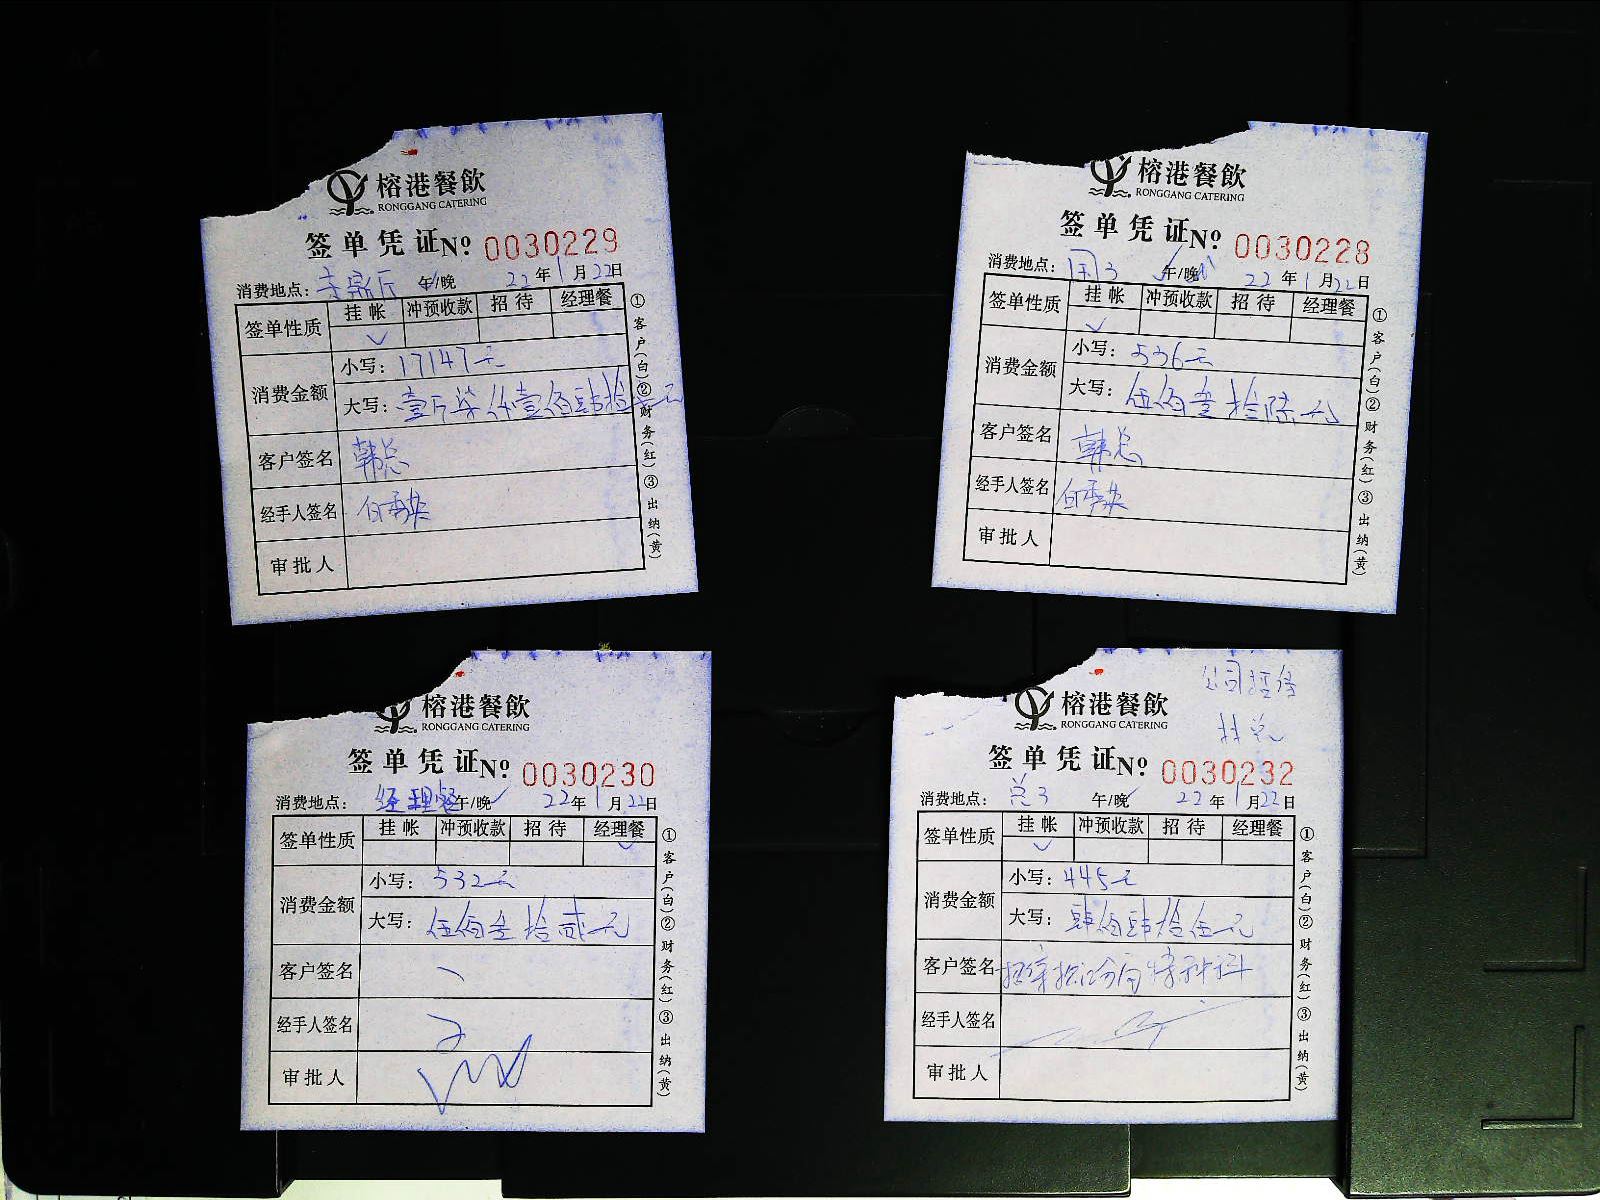 榕港餐飲
RONGGANG CATERING
签单凭证 Nº 0030229
消费地点： 午/晚 22年1月22日
签单性质 挂帐 冲预收款 招待 经理餐
✓
消费金额 小写：17147元
大写：壹万柒仟壹佰肆拾
客户签名 韩总
经手人签名
审批人
①客户(白)②财务(红)③出纳(黄)
榕港餐飲
RONGGANG CATERING
签单凭证 Nº 0030228
消费地点： 午/晚 22年1月22日
签单性质 挂帐 冲预收款 招待 经理餐
✓
消费金额 小写：536元
大写：伍佰叁拾陆元
客户签名 韩总
经手人签名
审批人
①客户(白)②财务(红)③出纳(黄)
榕港餐飲
RONGGANG CATERING
签单凭证 Nº 0030230
消费地点：经理餐 午/晚 22年1月22日
签单性质 挂帐 冲预收款 招待 经理餐
✓
消费金额 小写：532元
大写：伍佰叁拾贰元
客户签名
经手人签名
审批人
①客户(白)②财务(红)③出纳(黄)
公司
林总
榕港餐飲
RONGGANG CATERING
签单凭证 Nº 0030232
消费地点：总3 午/晚 22年1月22日
签单性质 挂帐 冲预收款 招待 经理餐
✓
消费金额 小写：445元
大写：肆佰肆拾伍元
客户签名
经手人签名
审批人
①客户(白)②财务(红)③出纳(黄)